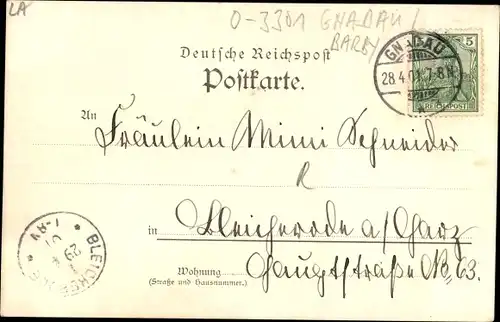 LA
O-3301 GNADAU /
BARBY
Deutsche Reichspost
Postkarte.
GNADAU
28.4.01.7-8N.
5
REICHSPOST
An
Fräulein Mimi Schneider
in Bleicherode a/Harz
Wohnung Hauptstraße No 63.
(Straße und Hausnummer.)
BLEICHERODE
29 4
01
7-8V